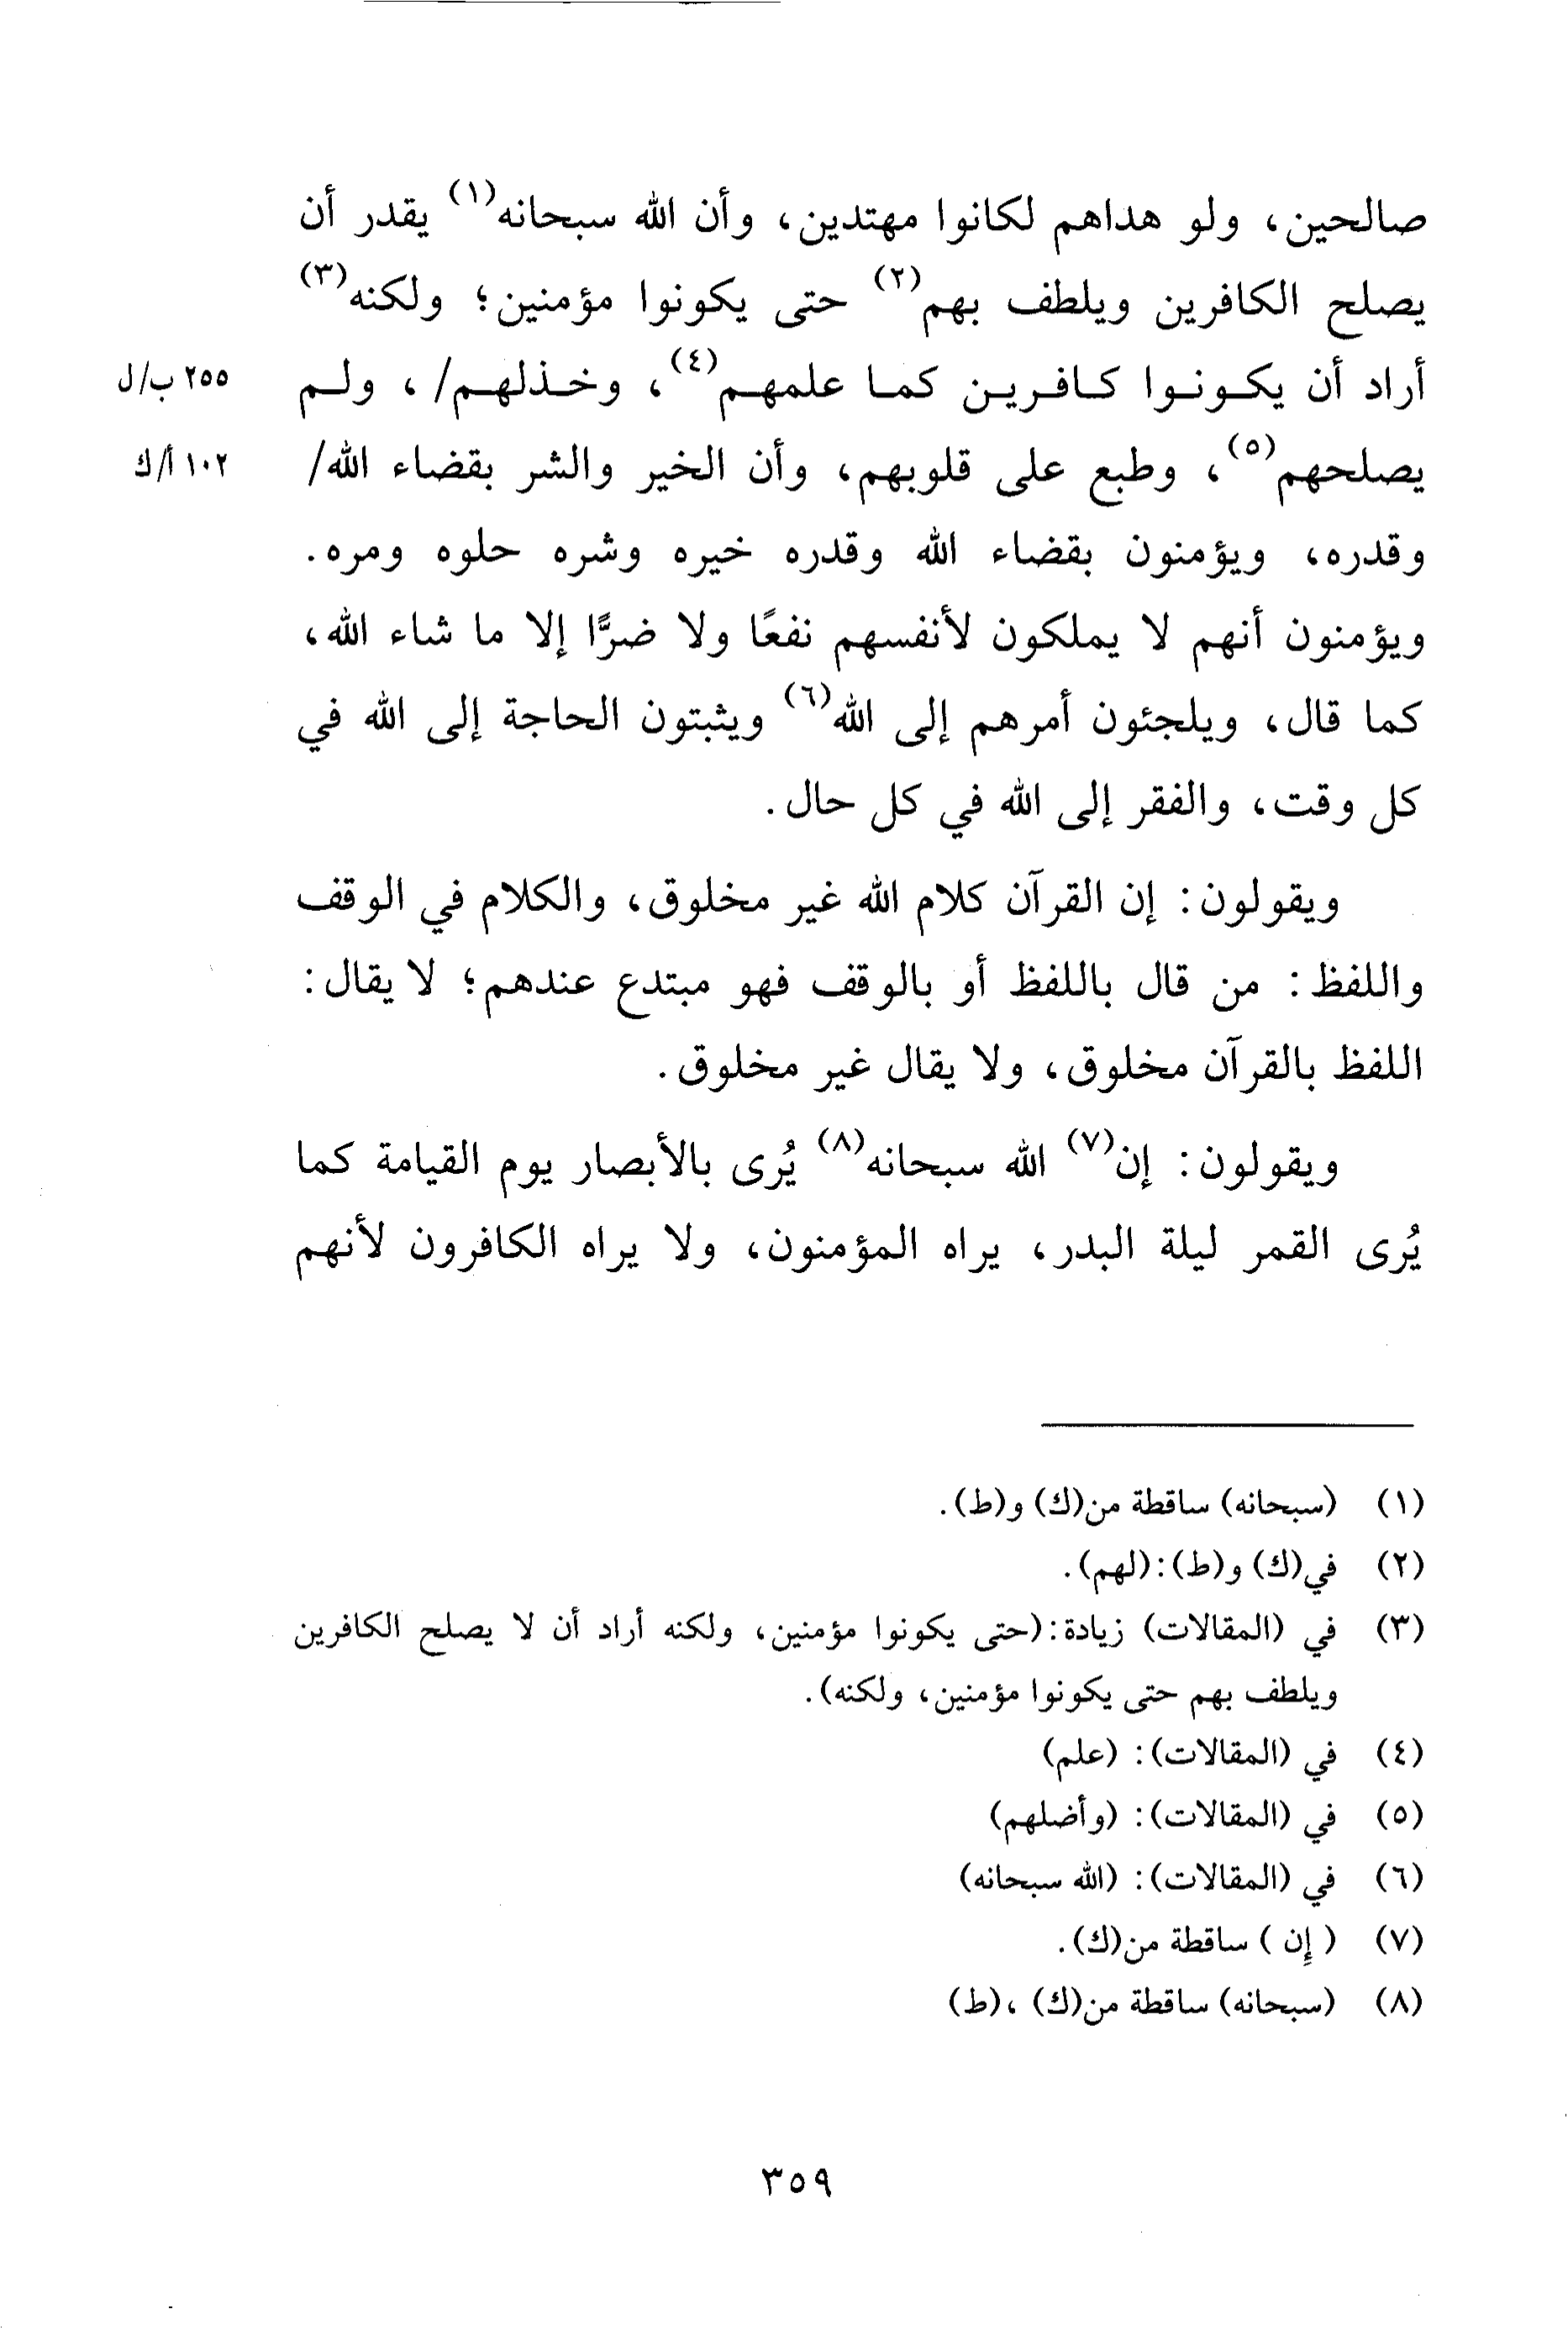 صالحين، ولو هداهم لكانوا مهتدين، وأن الله سبحانه(١) يقدر أن
يصلح الكافرين ويلطف بهم(٢) حتى يكونوا مؤمنين؛ ولكنه(٣)
أراد أن يكونوا كافرين كما علمهم(٤)، وخذلهم/، ولم
٢٥٥ ب/ل
يصلحهم(٥)، وطبع على قلوبهم، وأن الخير والشر بقضاء الله/
١٠٢ أ/ك
وقدره، ويؤمنون بقضاء الله وقدره خيره وشره حلوه ومره.
ويؤمنون أنهم لا يملكون لأنفسهم نفعًا ولا ضرًّا إلا ما شاء الله،
كما قال، ويلجئون أمرهم إلى الله(٦) ويثبتون الحاجة إلى الله في
كل وقت، والفقر إلى الله في كل حال.
ويقولون: إن القرآن كلام الله غير مخلوق، والكلام في الوقف
واللفظ: من قال باللفظ أو بالوقف فهو مبتدع عندهم؛ لا يقال:
اللفظ بالقرآن مخلوق، ولا يقال غير مخلوق.
ويقولون: إن(٧) الله سبحانه(٨) يُرى بالأبصار يوم القيامة كما
يُرى القمر ليلة البدر، يراه المؤمنون، ولا يراه الكافرون لأنهم
(١) (سبحانه) ساقطة من(ك) و(ط).
(٢) في(ك) و(ط):(لهم).
(٣) في (المقالات) زيادة:(حتى يكونوا مؤمنين، ولكنه أراد أن لا يصلح الكافرين
ويلطف بهم حتى يكونوا مؤمنين، ولكنه).
(٤) في (المقالات): (علم)
(٥) في (المقالات): (وأضلهم)
(٦) في (المقالات): (الله سبحانه)
(٧) ( إن ) ساقطة من(ك).
(٨) (سبحانه) ساقطة من(ك) ،(ط)
٣٥٩